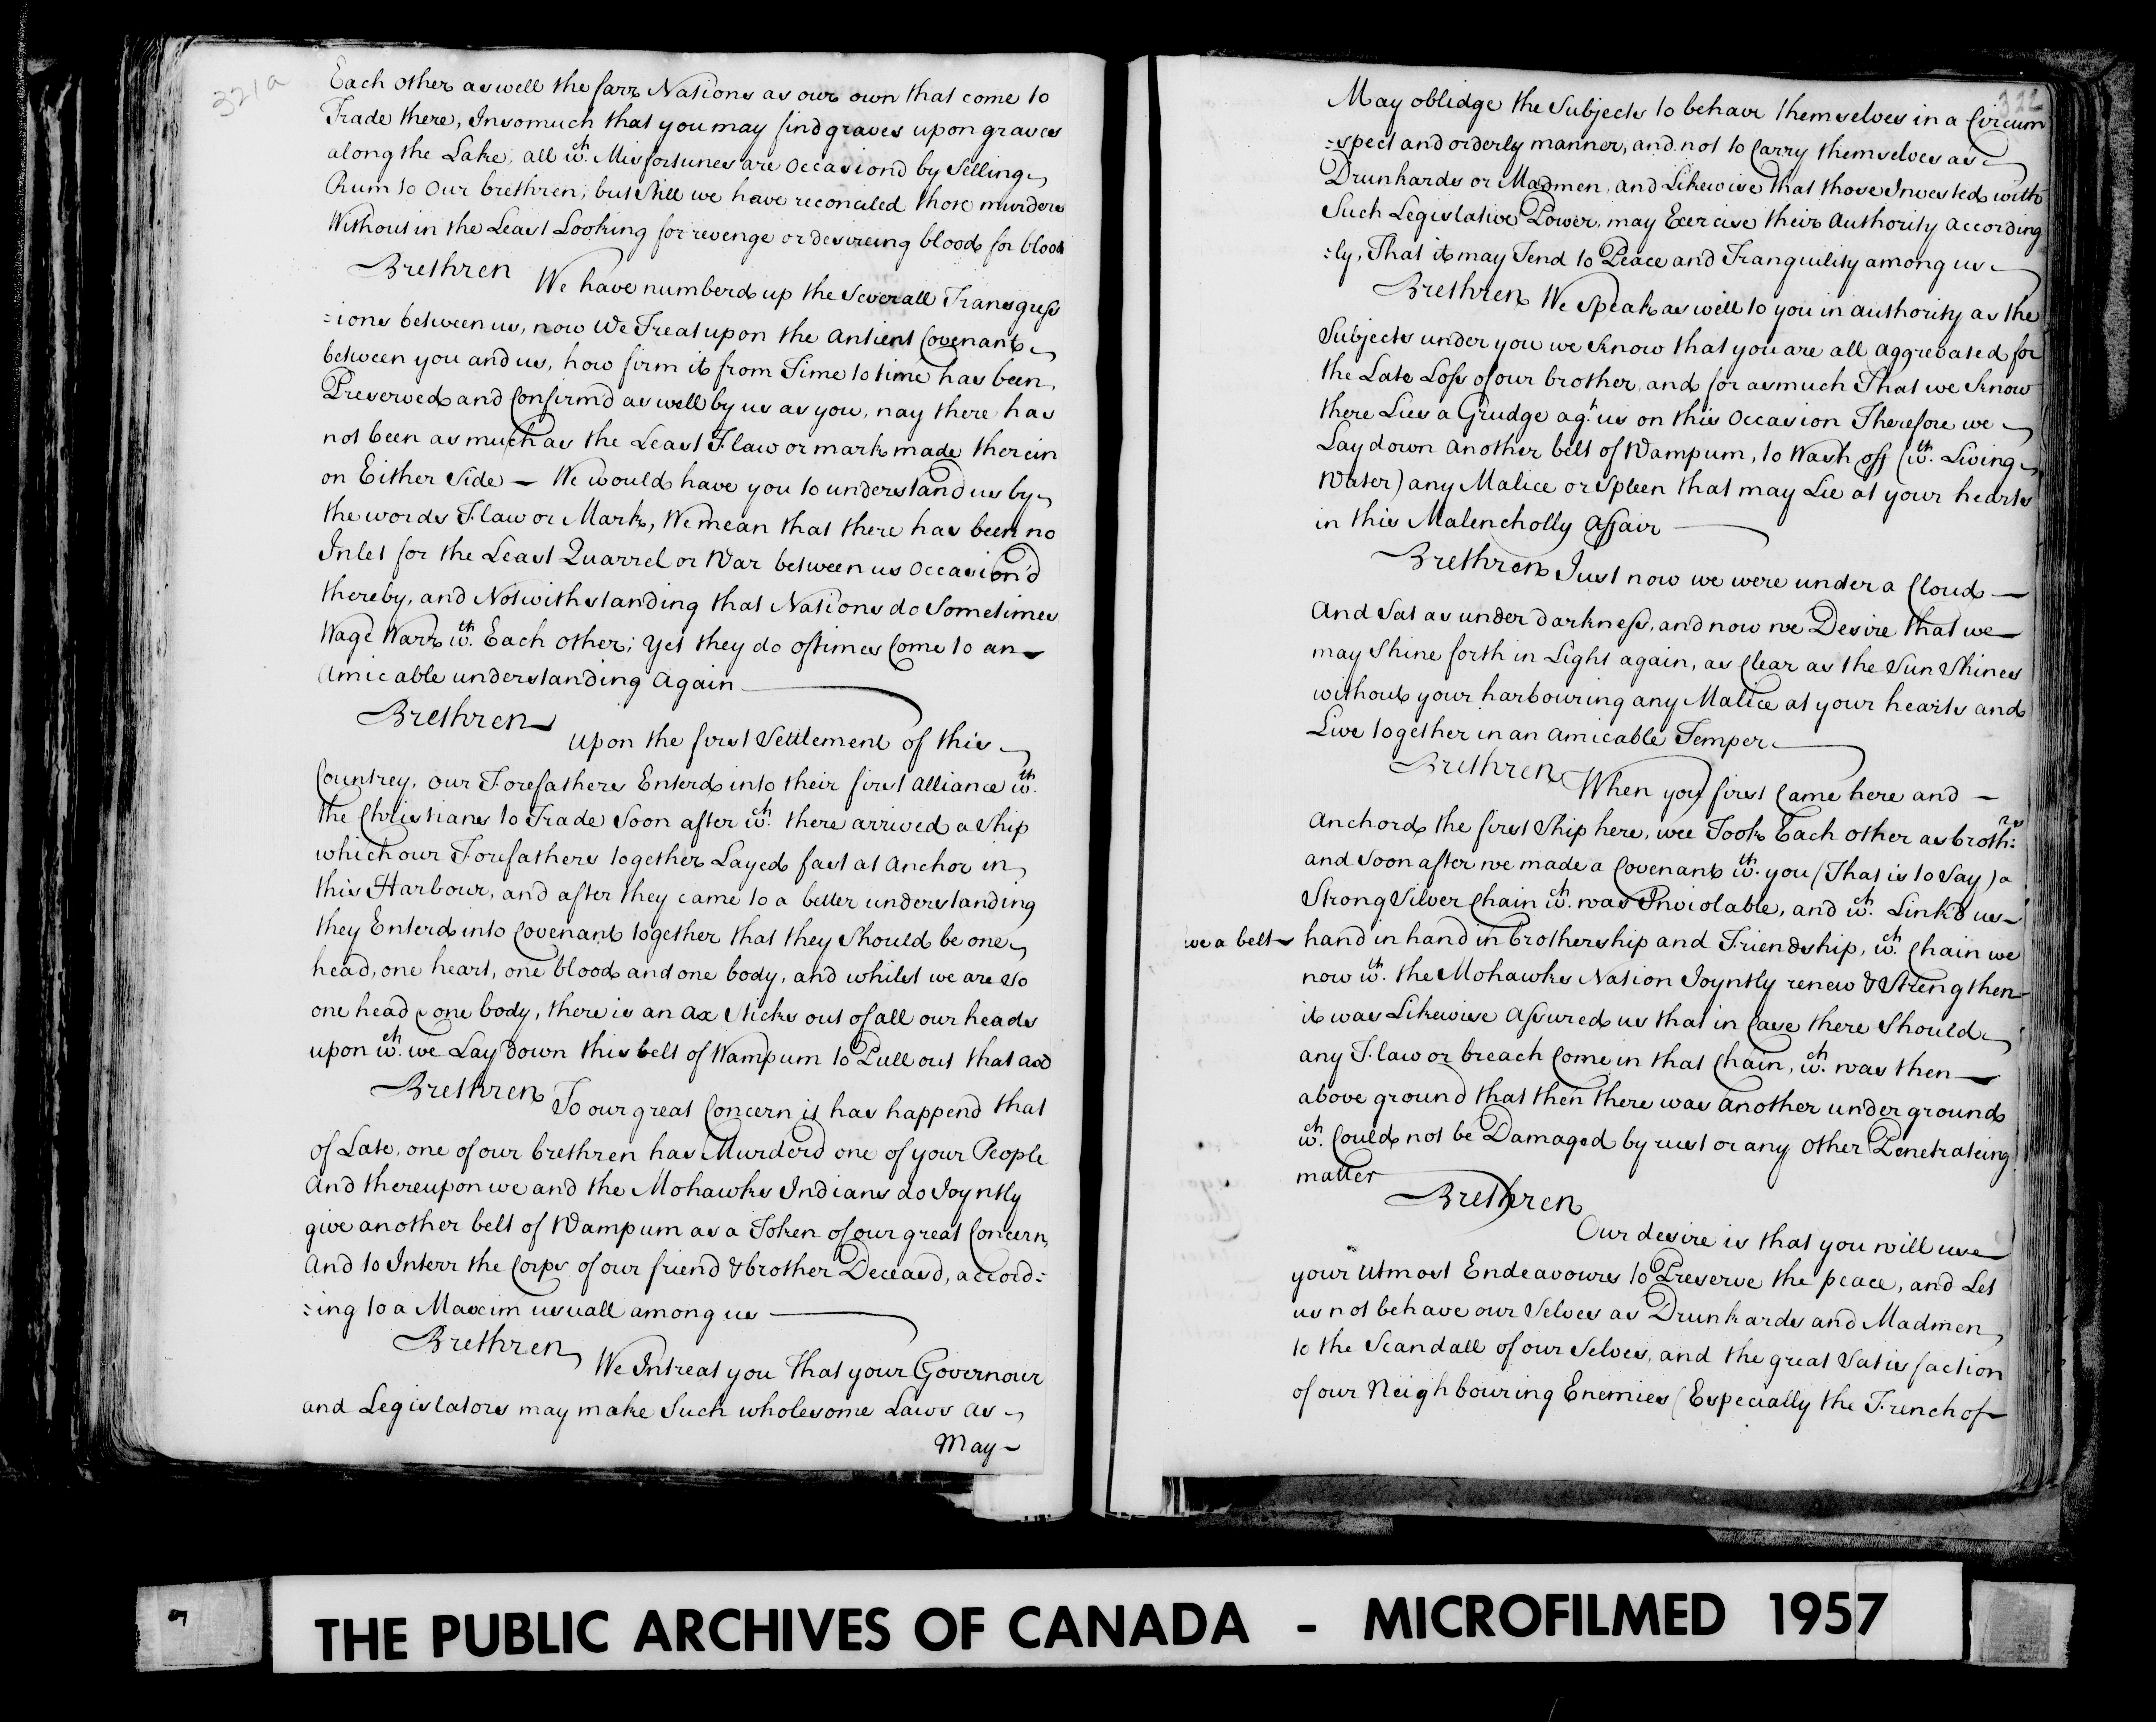 321a
Each other as well the farr Nations as our own that come to
Trade there, Insomuch that you may find graves upon graves
along the Lake, all wch. Misfortunes are Occasiond by Selling
Rum to Our brethren, but still we have reconciled those murders
Without in the Least Looking for revenge or desireing blood for blood
Brethren We have numberd up the Severall Transgress
=ions between us, now We Treat upon the Antient Covenant
between you and us, how firm it from Time to time has been
Preserved and Confirm'd as well by us as you, nay there has
not been as much as the Least Flaw or mark made therein
on Either Side — We would have you to understand us by
the words Flaw or Mark, We mean that there has been no
Inlet for the Least Quarrel or War between us Occasion'd
thereby, and Notwithstanding that Nations do Sometimes
Wage Warr wth. Each other; Yet they do oftimes Come to an
Amicable understanding Again
Brethren
Upon the first Settlement of this
Countrey, our Forefathers Enterd into their first Alliance wth.
the Christians to Trade Soon after wch. there arrived a Ship
which our Forefathers together Layed fast at Anchor in
this Harbour, and after they came to a better understanding
they Enterd into Covenant together that they Should be one
head, one heart, one blood and one body, and whilst we are so
one head & one body, there is an Ax sticks out of all our heads
upon wch. we Lay down this belt of Wampum to Pull out that ax
Brethren To our great Concern it has happend that
of Late, one of our brethren has Murderd one of your People
And thereupon we and the Mohawks Indians do Joyntly
give another belt of Wampum as a Token of our great Concern,
And to Interr the Corps of our friend & brother Deceasd, accord=
=ing to a Maxim usuall among us
Brethren We Intreat you That your Governour
and Legislators may make Such wholesome Laws as
May
322
May oblidge the Subjects to behave themselves in a Circum
=spect and orderly manner, and not to Carry themselves as
Drunkards or Madmen, and Likewise that those Invested with
Such Legislative Power, may Exercise their Authority According
=ly, That it may Tend to Peace and Tranquility among us
Brethren We Speak as well to you in authority as the
Subjects under you we know that you are all Aggrevated for
the Late Loss of our brother, and for as much That we know
there Lies a Grudge agt. us on this Occasion Therefore we
Lay down another belt of Wampum, to Wash off (wth. Living
Water) any Malice or Spleen that may Lie at your hearts
in this Malencholly Affair
Brethren Just now we were under a Cloud —
And Sat as under darkness, and now we Desire that we
may Shine forth in Light again, as Clear as the Sun Shines
without your harbouring any Malice at your hearts and
Live together in an Amicable Temper
Brethren When you first Came here and —
Anchord the first Ship here, wee Took Each other as brothrs:
and Soon after we made a Covenant wth. you (That is to Say) a
Strong Silver Chain wch. was Inviolable, and wch. Link'd us
ve a belt hand in hand in brothership and Friendship, wch. Chain we
now wth. the Mohawks Nation Joyntly renew & Strengthen
it was Likewise Assured us that in Case there Should
any Flaw or breach Come in that Chain, wch. was then
above ground that then there was another under ground
wch. Could not be Damaged by rust or any Other Penetrateing
matter
Brethren
Our desire is that you will use
your Utmost Endeavours to Preserve the peace, and Let
us not behave our Selves as Drunkards and Madmen
to the Scandall of our Selves, and the great Satisfaction
of our Neighbouring Enemies (Especially the French of
THE PUBLIC ARCHIVES OF CANADA - MICROFILMED 1957